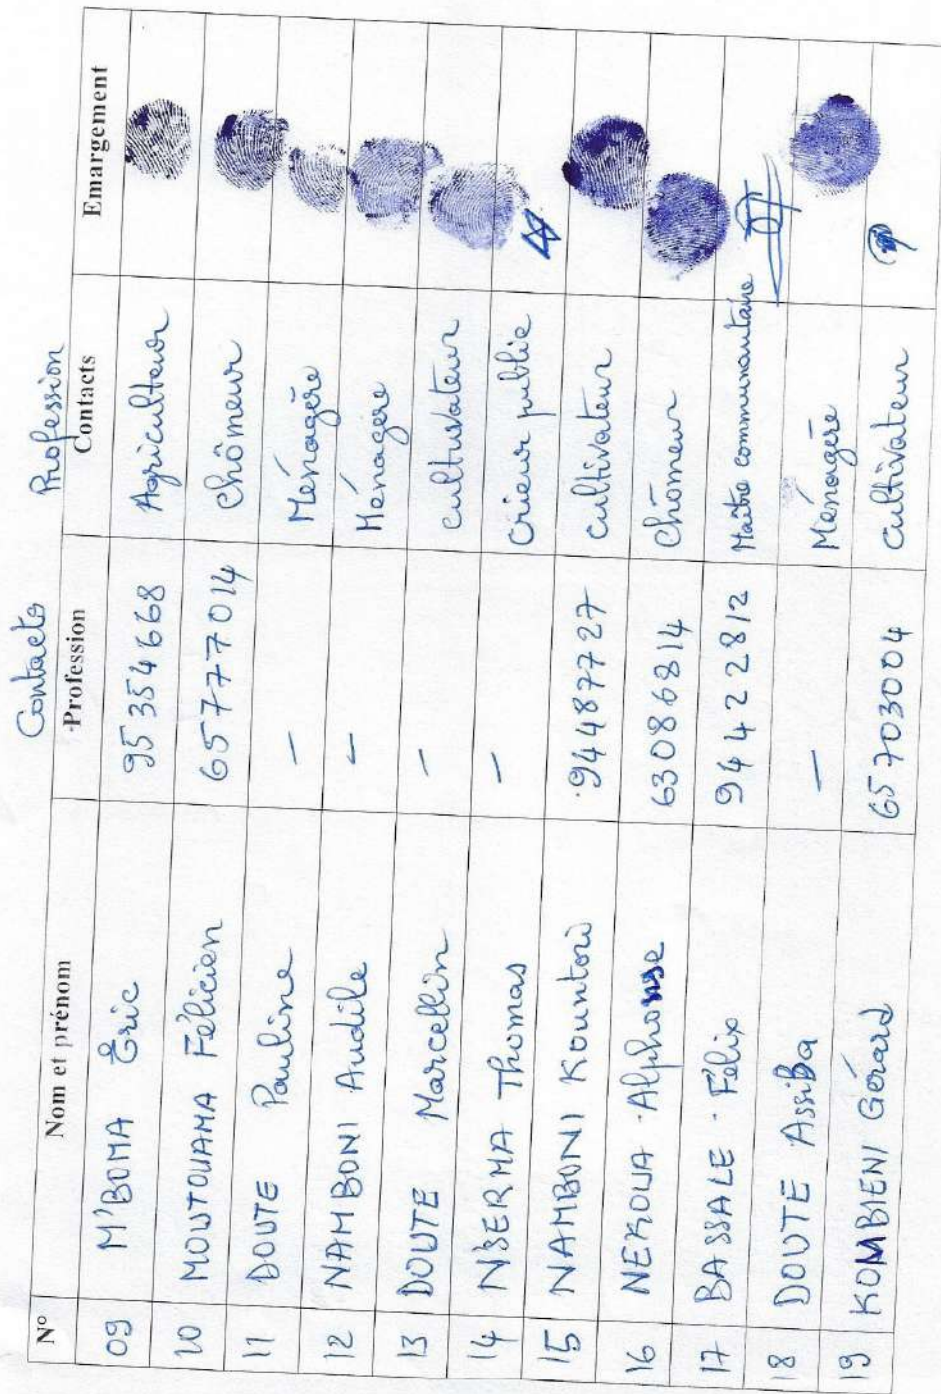 Contacts Profession
N° Nom et prénom Profession Contacts Emargement
09 M'BOMA Éric 95354668 Agriculteur
10 MOUTOUAMA Félicien 65777014 Chômeur
11 DOUTE Pauline – Ménagère
12 NAMBONI Audile – Ménagère
13 DOUTE Marcellin – cultivateur
14 N'SERMA Thomas – Crieur public
15 NAMBONI Kountori 94487727 cultivateur
16 NEKOUA Alphonse 63086814 Chômeur
17 BASSALE Félix 94422812 Maître communautaire
18 DOUTE Assiba – Ménagère
19 KOMBIENI Gérard 65703004 cultivateur